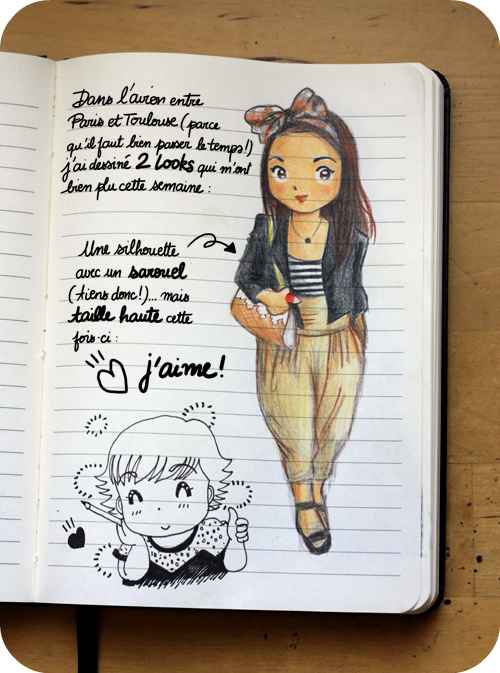 Dans l'avion entre
Paris et Toulouse (parce
qu'il faut bien passer le temps!)
j'ai dessiné 2 Looks qui m'ont
bien plu cette semaine :
Une silhouette
avec un sarouel
(tiens donc!)... mais
taille haute cette
fois-ci :
j'aime!